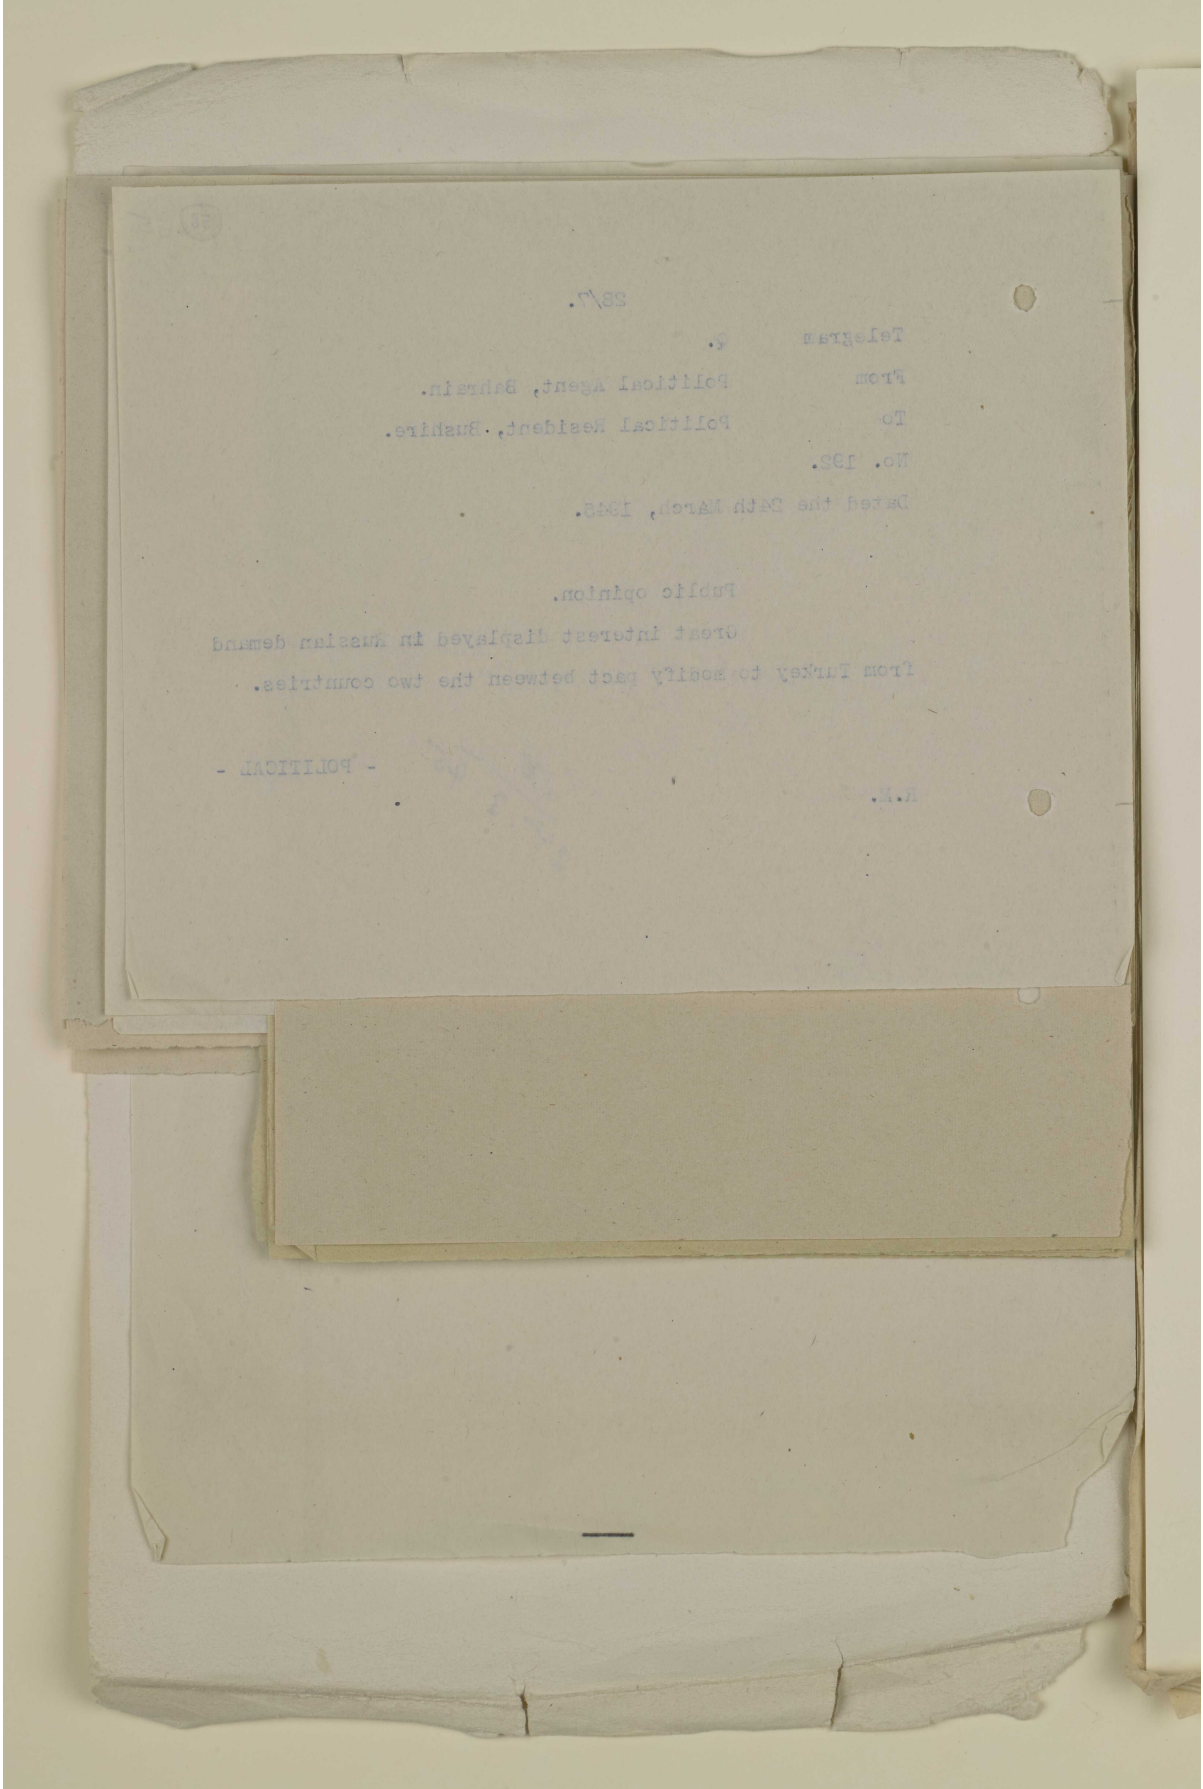 28/7.
Telegram Q.
From Political Agent, Bahrain.
To Political Resident, Bushire.
No. 192.
Dated the 24th March, 1945.
Public opinion.
Great interest displayed in Russian demand
from Turkey to modify pact between the two countries.
- POLITICAL -